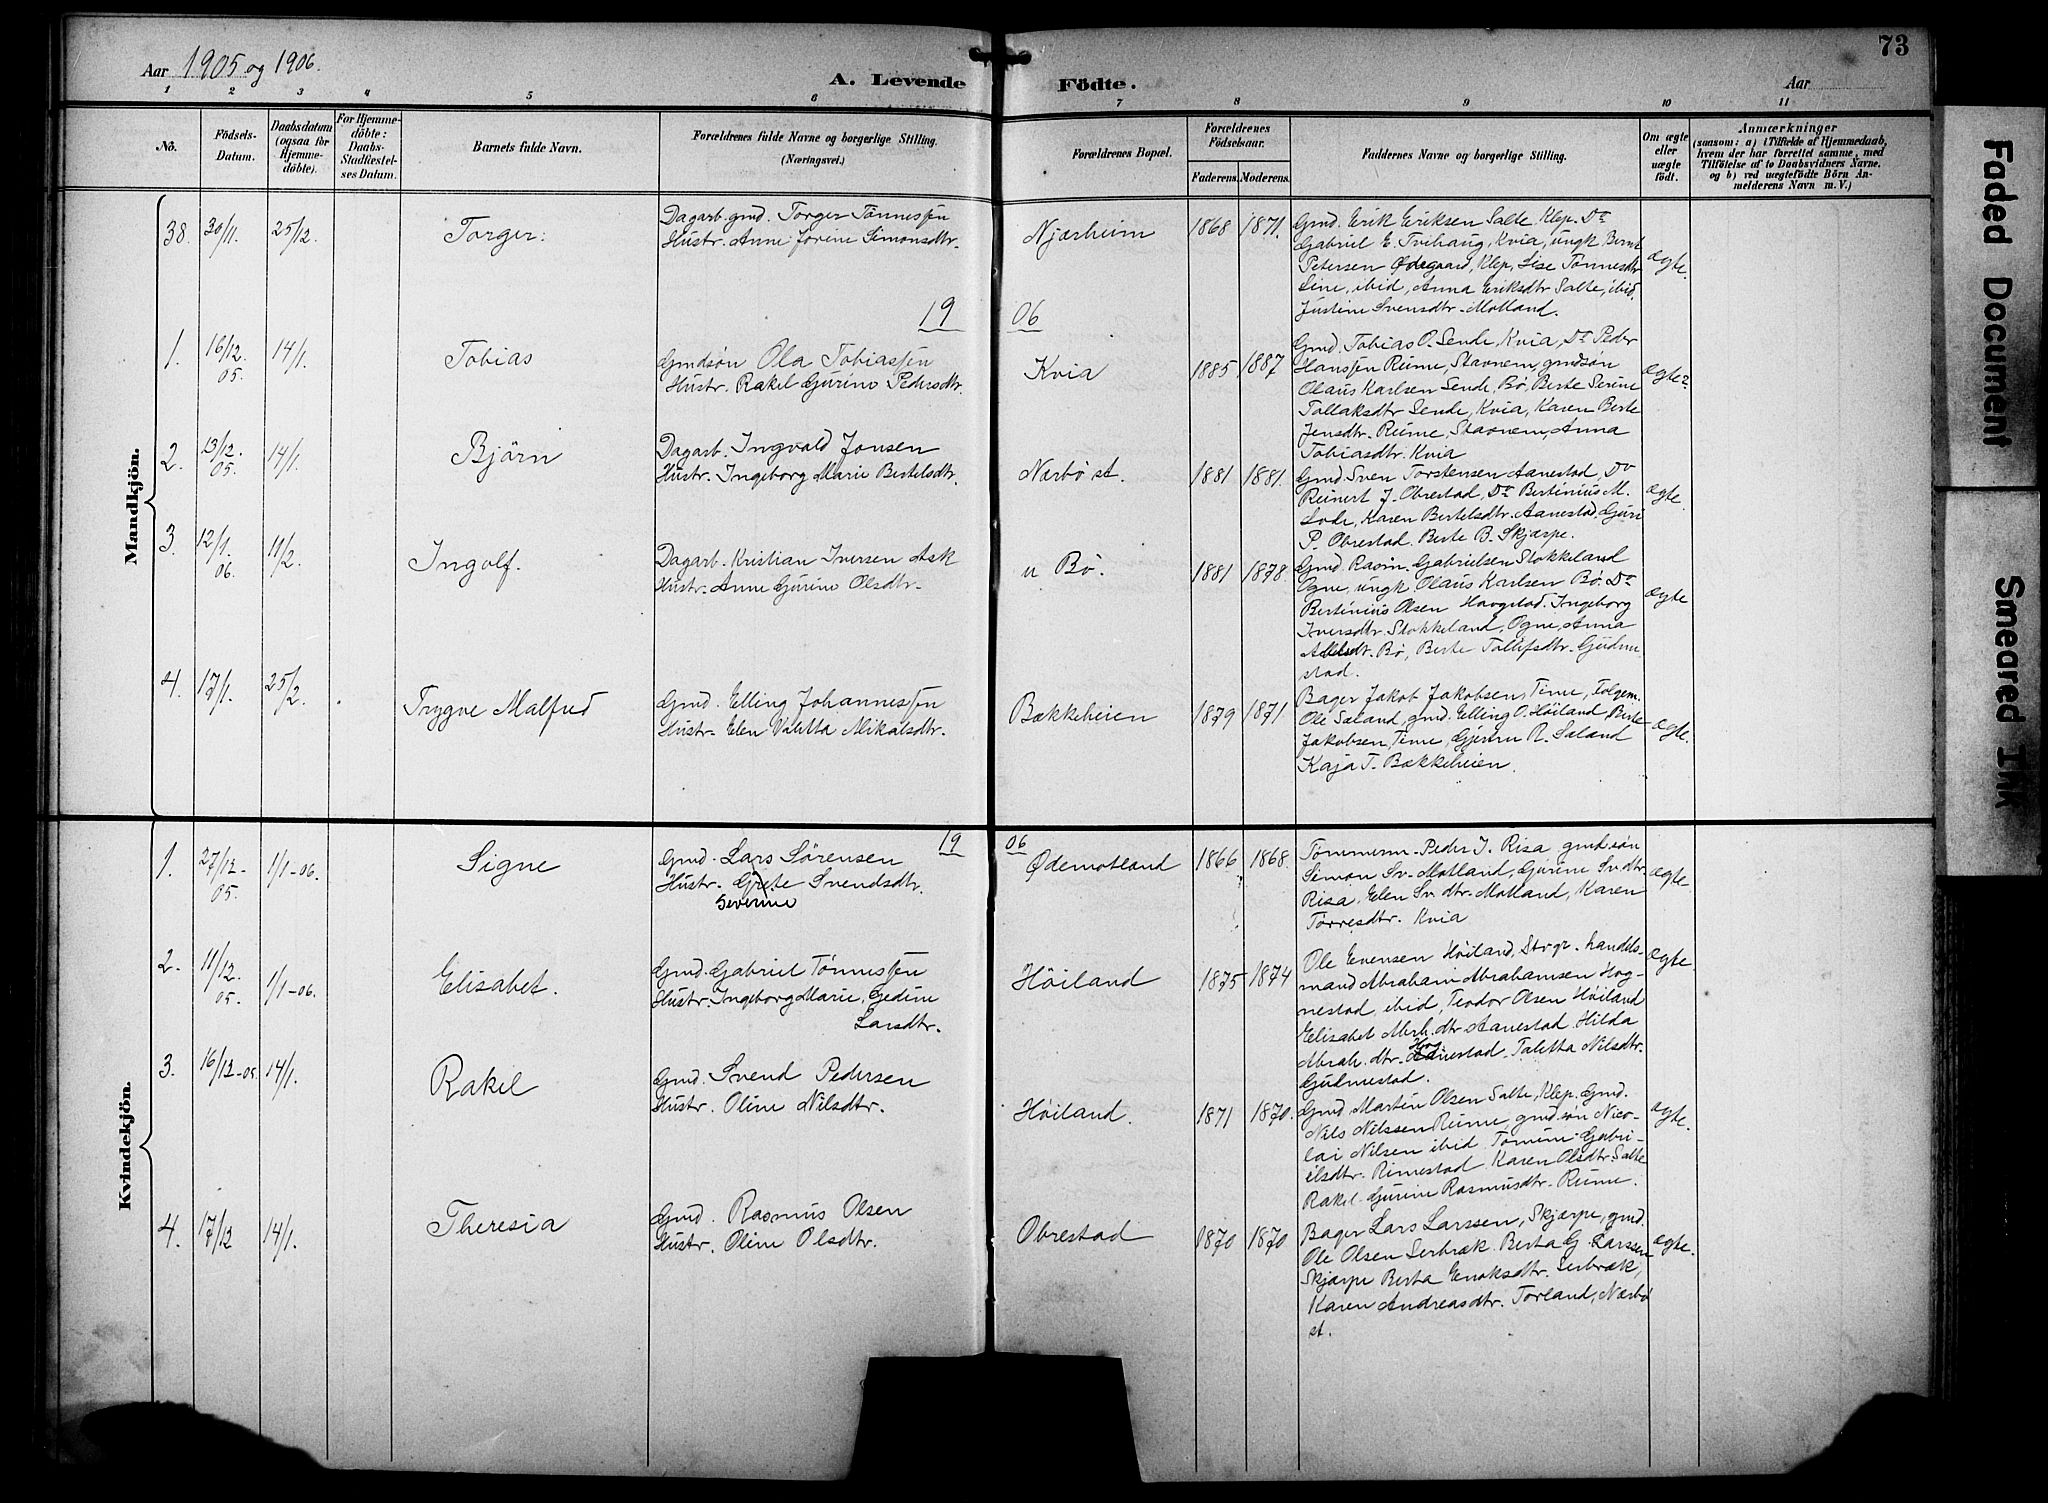 Aar 1905 og 1906.
A. Levende Födte.
Aar
73
1 2 3 4 5 6 7 8 9 10 11
No.
Födsels-Datum.
Daabsdatum (ogsaa for Hjemme-döbte).
For Hjemme-döbte: Daabs-Stadfæstel-ses Datum.
Barnets fulde Navn.
Forældrenes fulde Navne og borgerlige Stilling. (Næringsvei.)
Forældrenes Bopæl.
Forældrenes Födselsaar.
Faderens. Moderens.
Faddernes Navne og borgerlige Stilling.
Om ægte eller uægte födt.
Anmærkninger
(saasom: a) i Tilfælde af Hjemmedaab,
hvem der har forrettet samme, med
Tilföielse af to Daabsvidners Navne.
og b) ved uægtefödte Börn An-
melderens Navn m. V.)
Mandkjön.
38. 30/11. 25/12. Torger.
Dagarb. gmd. Torger Tönnessen
Hustr. Anne Jorine Simonsdtr.
Njærheim 1868 1871.
Gmd. Erik Eriksen Salte Klep. Do
Gabriel E. Tvihaug, Kvia, ungk Bernt
Petersen Ødegaard, Klep, Lise Tönnesdtr
Line, ibid, Anna Eriksdtr Salte, ibid.
Justine Svensdtr. Motland.
ægte.
19 06
1. 16/12 05. 14/1. Tobias
Gmdsön Ola Tobiassen
Hustr. Rakel Gurine Pedersdtr.
Kvia 1885 1887
Gmd. Tobias O. Sende, Kvia, Do Peder
Hanssen Rime, Stavnem, gmdsön
Olaus Karlsen Sende, Bö, Berte Serine
Tollaksdtr Sende, Kvia, Karen Berte
Jensdtr. Rime, Stavnem, Anna
Tobiasdtr. Kvia
ægte
2. 13/12. 05. 14/1. Björn
Dagarb. Ingvald Jonsen
Hustr. Ingeborg Marie Bertelsdtr.
Nærbö st. 1881 1881.
Gmd. Sven Torstensen Aanestad, Do
Reinert J. Obrestad, Do Bertinius M.
Lode, Karen Bertelsdtr. Aanestad, Guri
P. Obrestad. Berte B. Skjærpe.
ægte.
3. 12/1. 06. 11/2. Ingolf.
Dagarb. Kristian Iversen Ask
Hustr. Anne Gurine Olsdtr.
u Bö. 1881 1878.
Gmd. Rasm. Gabrielsen Stokkeland
Ogne, ungk Olaus Karlsen Bö. Do
Bertinius Olsen Haogstad. Ingeborg
Iversdtr. Stokkeland, Ogne, Anna
Bö, Berte Tollefsdtr. Gudme
stad.
ægte
4. 17/1. 25/2. Trygve Malfred
Gmd. Elling Johannessen
Hustr. Elen Valetta Mikalsdtr.
Bækkeheien 1879 1871
Bager Jakob Jakobsen, Time,
Ole Sæland, gmd. Elling O. Höiland, Berte
Jakobsen, Time, R. Sæland
Kaja T. Bækkeheien.
ægte.
Kvindekjön.
19 06
1. 27/12- 05. 1/1-06. Signe
Gmd. Lars Sörensen
Hustr. Grete Svendsdtr.
Severine
Ødemotland 1866 1868.
Tömmerm. Peder J. Risa gmd.sön
Simon Sv. Motland, Gurine Sv.dtr
Risa, Elen Sv. dtr. Motland, Karen
Torresdtr. Kvia
ægte.
2. 11/12. 05. 1/1-06. Elisabet.
Gmd. Gabriel Tönnessen
Hustr Ingeborg Marie Gedine
Larsdtr.
Höiland 1875 1874
Ole Evensen Höiland, Stvgr. handels-
mand Abraham Abrahamsen Hog
nestad, ibid, Teodor Olsen Höiland
Elisabet Abrh. dtr Aanestad. Hilda
Abrah. dtr. Hognestad. Taletta Nilsdtr.
Gudmestad.
ægte.
3. 16/12-05. 14/1. Rakel
Gmd. Svend Pedersen
Hustr. Oline Nilsdtr.
Höiland. 1871 1870.
Gmd. Martin Olsen Salte, Klep. Gmd.
Nils Nilssen Rime, gmd. sön Nico-
lai Nilsen ibid. Tomine Gabri-
elsdtr. Rimestad. Karen Olsdtr. Salte
Rakel Gurine Rasmusdtr. Rime.
ægte.
4. 17/12 14/1. Theresia
Gmd. Rasmus Olsen
Hustr. Oline Olsdtr.
Obrestad 1870 1870
Bager Lars Larssen, Skjærpe, gmd.
Ole Olsen Serbræk. Berta G. Larssen
Skjærpe Berta Enoksdtr. Serbræk,
Karen Andreasdtr. Torland, Nærbö
st.
ægte.
Faded Document
Smeared Ink